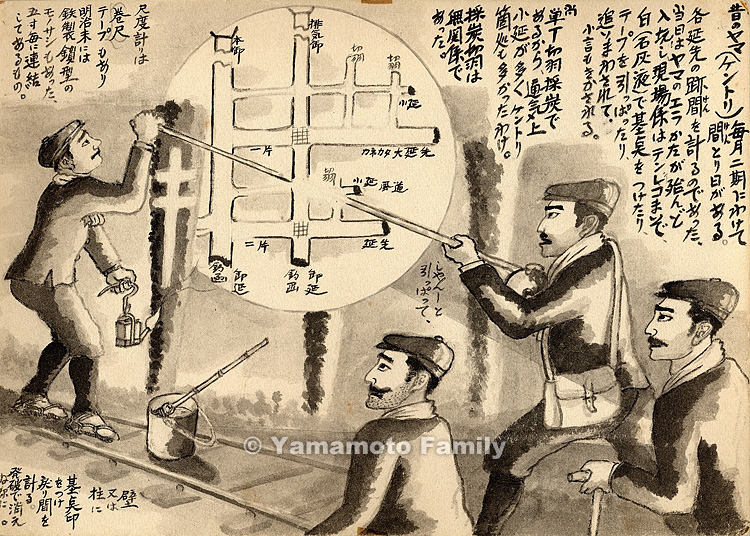 昔のヤマ(ケントリ)毎月二期にわけて
間とり日がある。
各延先の跡間を計るのであった、
当日はヤマのエラかたが殆んど
入坑し現場係はテンテコまいで、
白(石灰)液で基点をつけたり、
テープを引っぱったり、
追いまわされて、
小言もきかされる。
単丁切羽採炭で
あるから、通気上
小延が多くケントリ
箇処も多かったわけ。
採炭切羽は
無関係で
あった。
尺度計りは
巻尺
テープもあり
明治末には
鉄製鎖型の
モノサシもあった、
五寸毎に連結
してあるもの。
本卸
排気卸
切羽
切羽
小延
一片
カネカタ大延先
切羽
小延
風道
二片
延先
卸延
卸延
じゃんーと
引っぱって、
© Yamamoto Family
壁
又は
柱に
基点印
をつけ
残り間を
計る
発破で消え